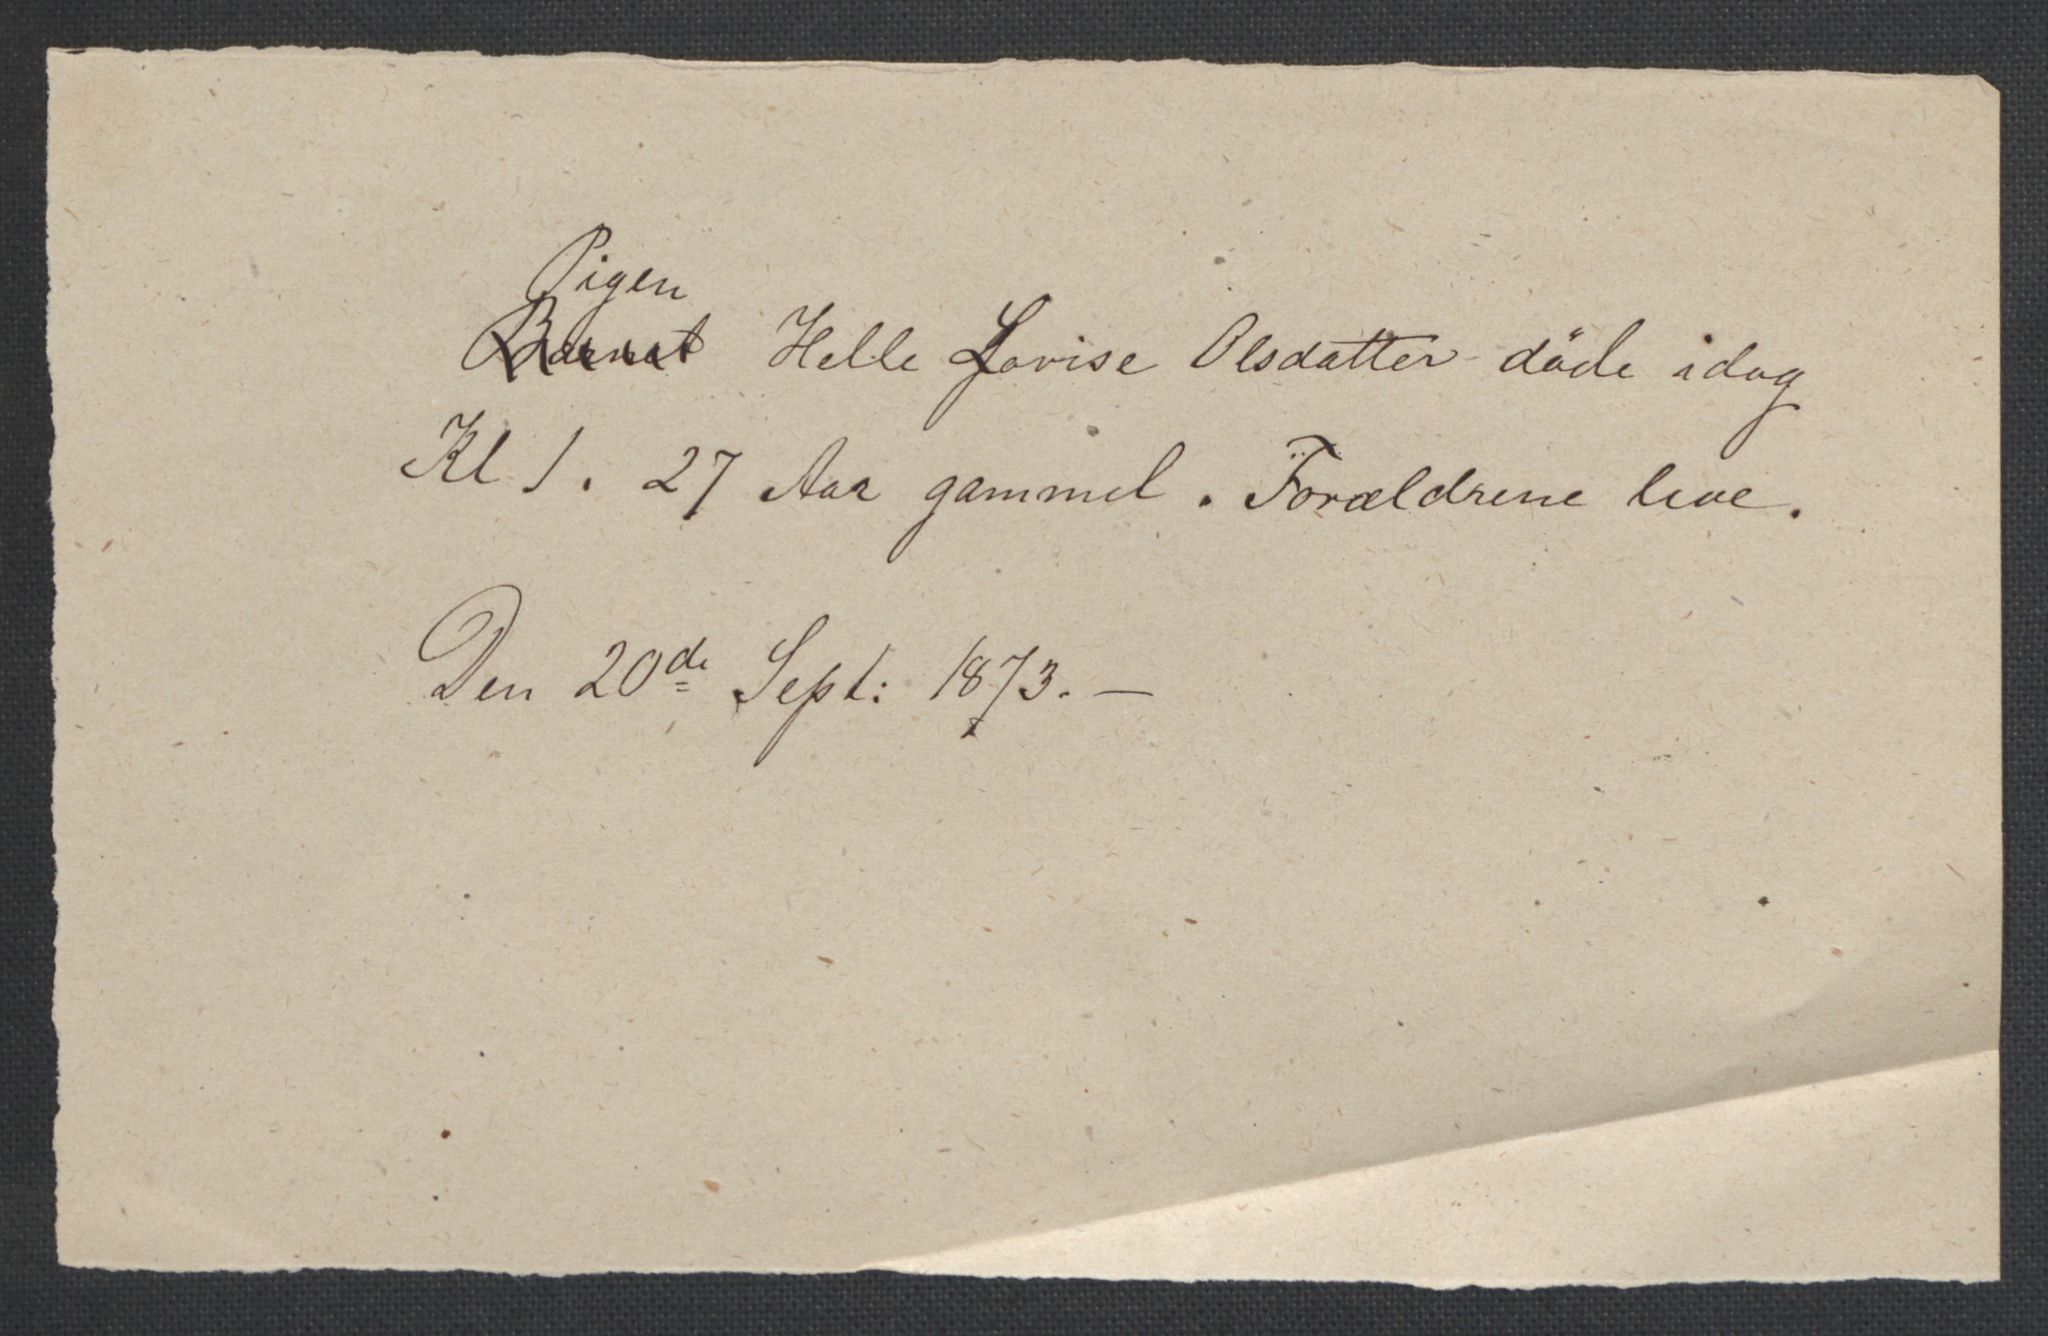 Pigen
Barnet Helle Lovise Olsdatter döde idag
Kl 1. 27 Aar gammel. Forældrene leve.
Den 20de Sept: 1873. —